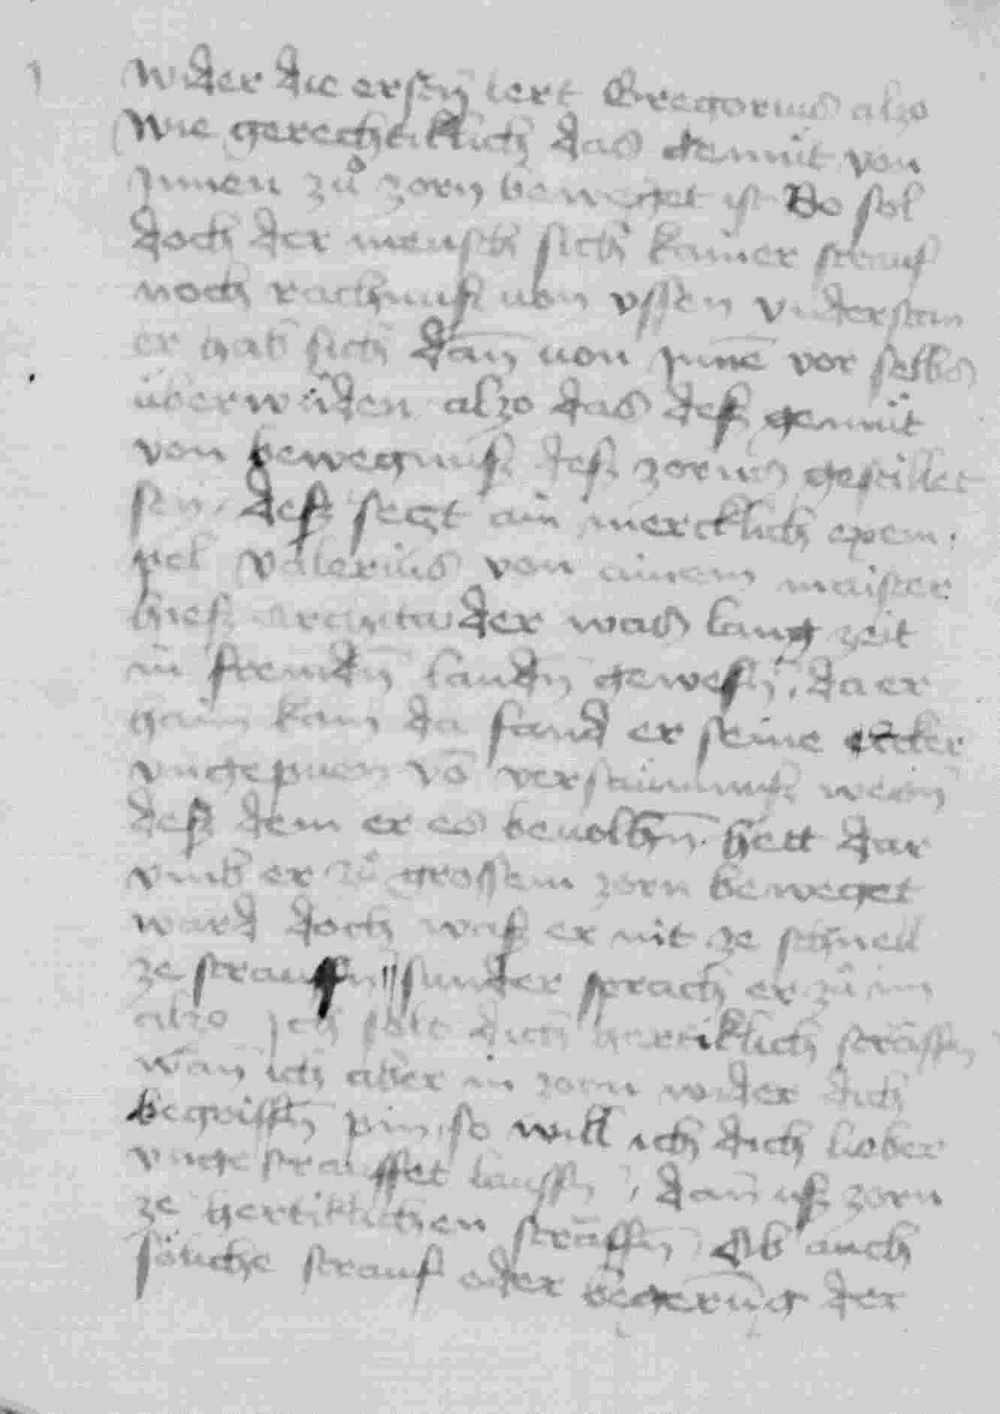 Wider die ersten lert Gregorius also
Wie gerechtiklich das gemüt von
Jnnen zů zorn beweget ist So sol
doch der mensch sich kainer strauf
noch rachnuß von vssen vnderstan
er hab sich dañ uon jnnē vor selbs
überwunden also das deß gemüt
von bewegnuß deß zorns gestillet
sey. deß setzt ain mercklich exem
pel Valerius von ainem maister
hieß Archita der was lang zeit
in fremdē landē gewesen, da er
haim kam da fand er seine ecker
vngepuen vō versäumnuß wegen
deß dem er es beuolhen hett dar
vmb er zů grossem zorn beweget
ward doch waß er nit ze schnell
ze strauffen sunder sprach er zů im
also ich sölt dich hertiklich straffen
wañ ich aber in zorn wider dich
begriffen pin, so will ich dich lieber
vngestrauffet laussen, dañ uß zorn
ze hertiklichen straffen, Ob auch
söliche strauf oder begerung der